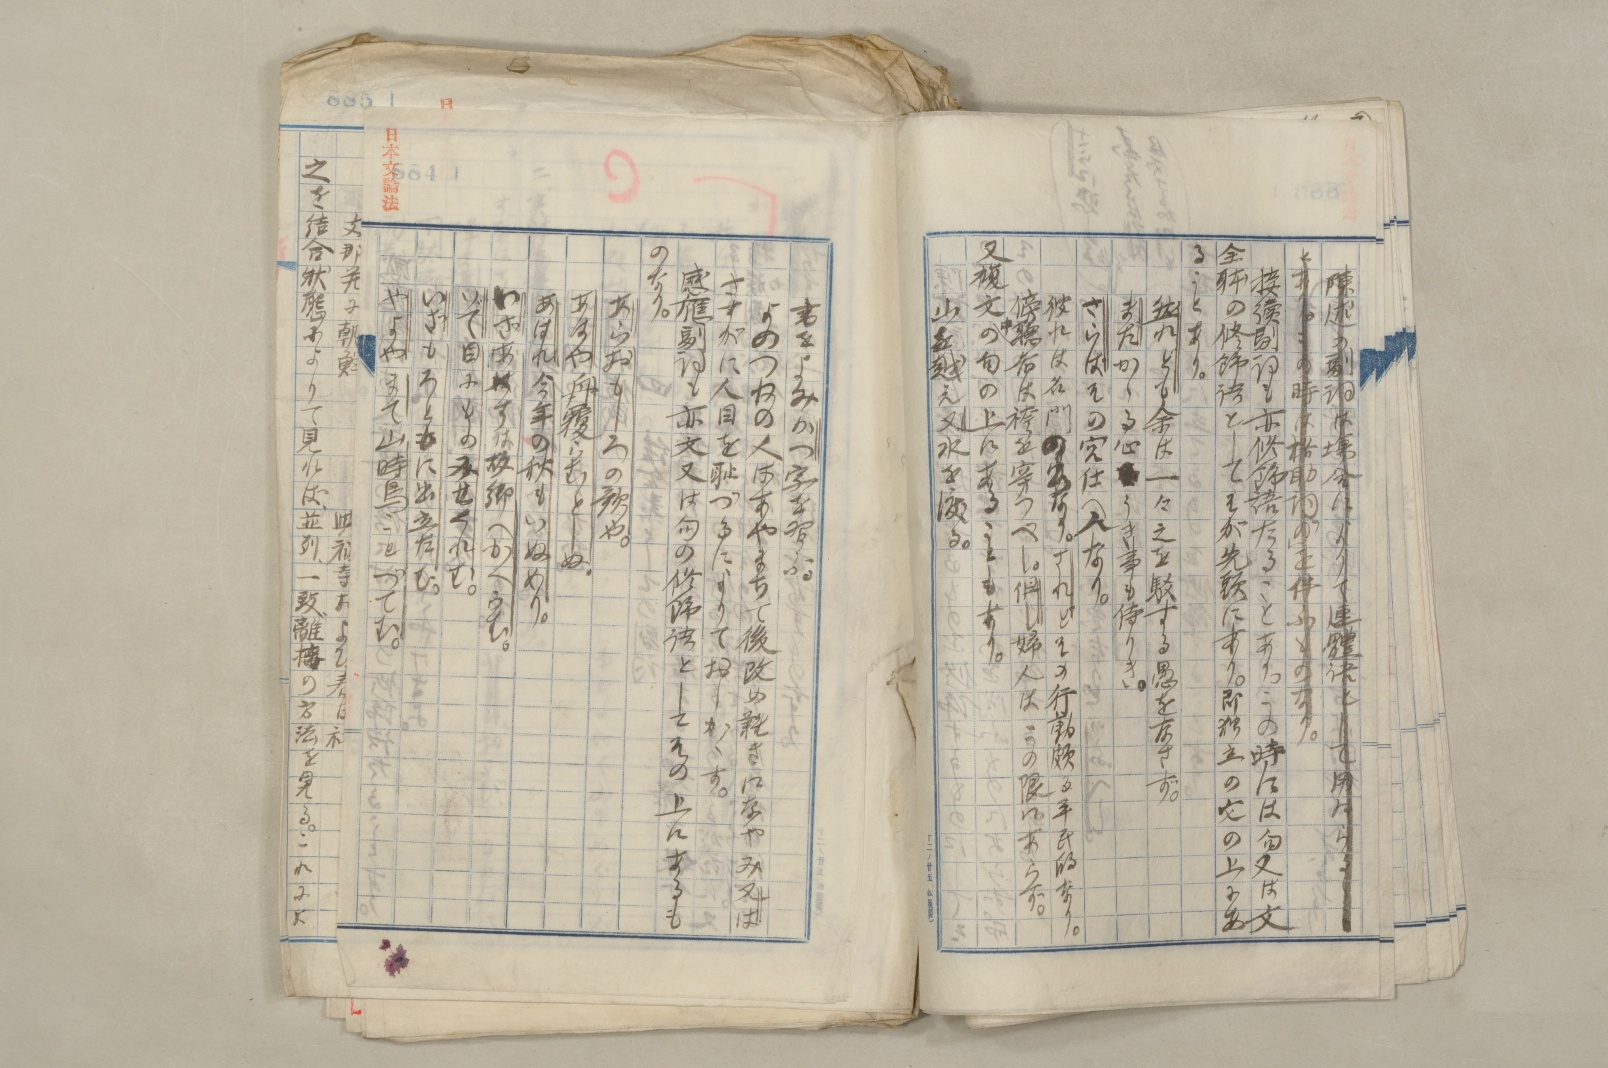 陳述の副詞は場合によりて連體語として用ゐらるゝ
ことあり。この時は格助詞「の」を伴ふものなり。
接續副詞も亦修飾語たることあり。この時には句又は文
全躰の修飾語としてそが先頭にあり。即獨立の文の上にあ
ることあり。
然れども余は一々之を駁する愚をなさず。
またかゝる心うき事も侍りき。
さらばその宛仕へ人なり。
彼れは名門の出なり。されどその行動頗る平民的なり。
傍聽者は袴を穿つべし。但し婦人はこの限にあらず。
又複文の中の句の上にあることもあり。
山を越え又水を渡る。
書をよみかつ字を習ふ。
よのつねの人はあやまちて後改め難きになやみ又は
さすがに人目を恥づるによりておしかくす。
感應副詞も亦文又は句の修飾語としてその上にあるも
のなり。
あらおもしろの歌や。
あはや舟覆らむとしぬ。
あはれ今年の秋もいぬめり。
いざあはすは故郷へかへらむ。
いで目にもの見せくれむ。
いざもろともに出立たむ。
やよやまて山時鳥ことづてむ。
日本文論法
支那并に朝鮮
興福寺および春日社
之を結合狀態によりて見れば、並列、一致、離接の方法を見る。これによ